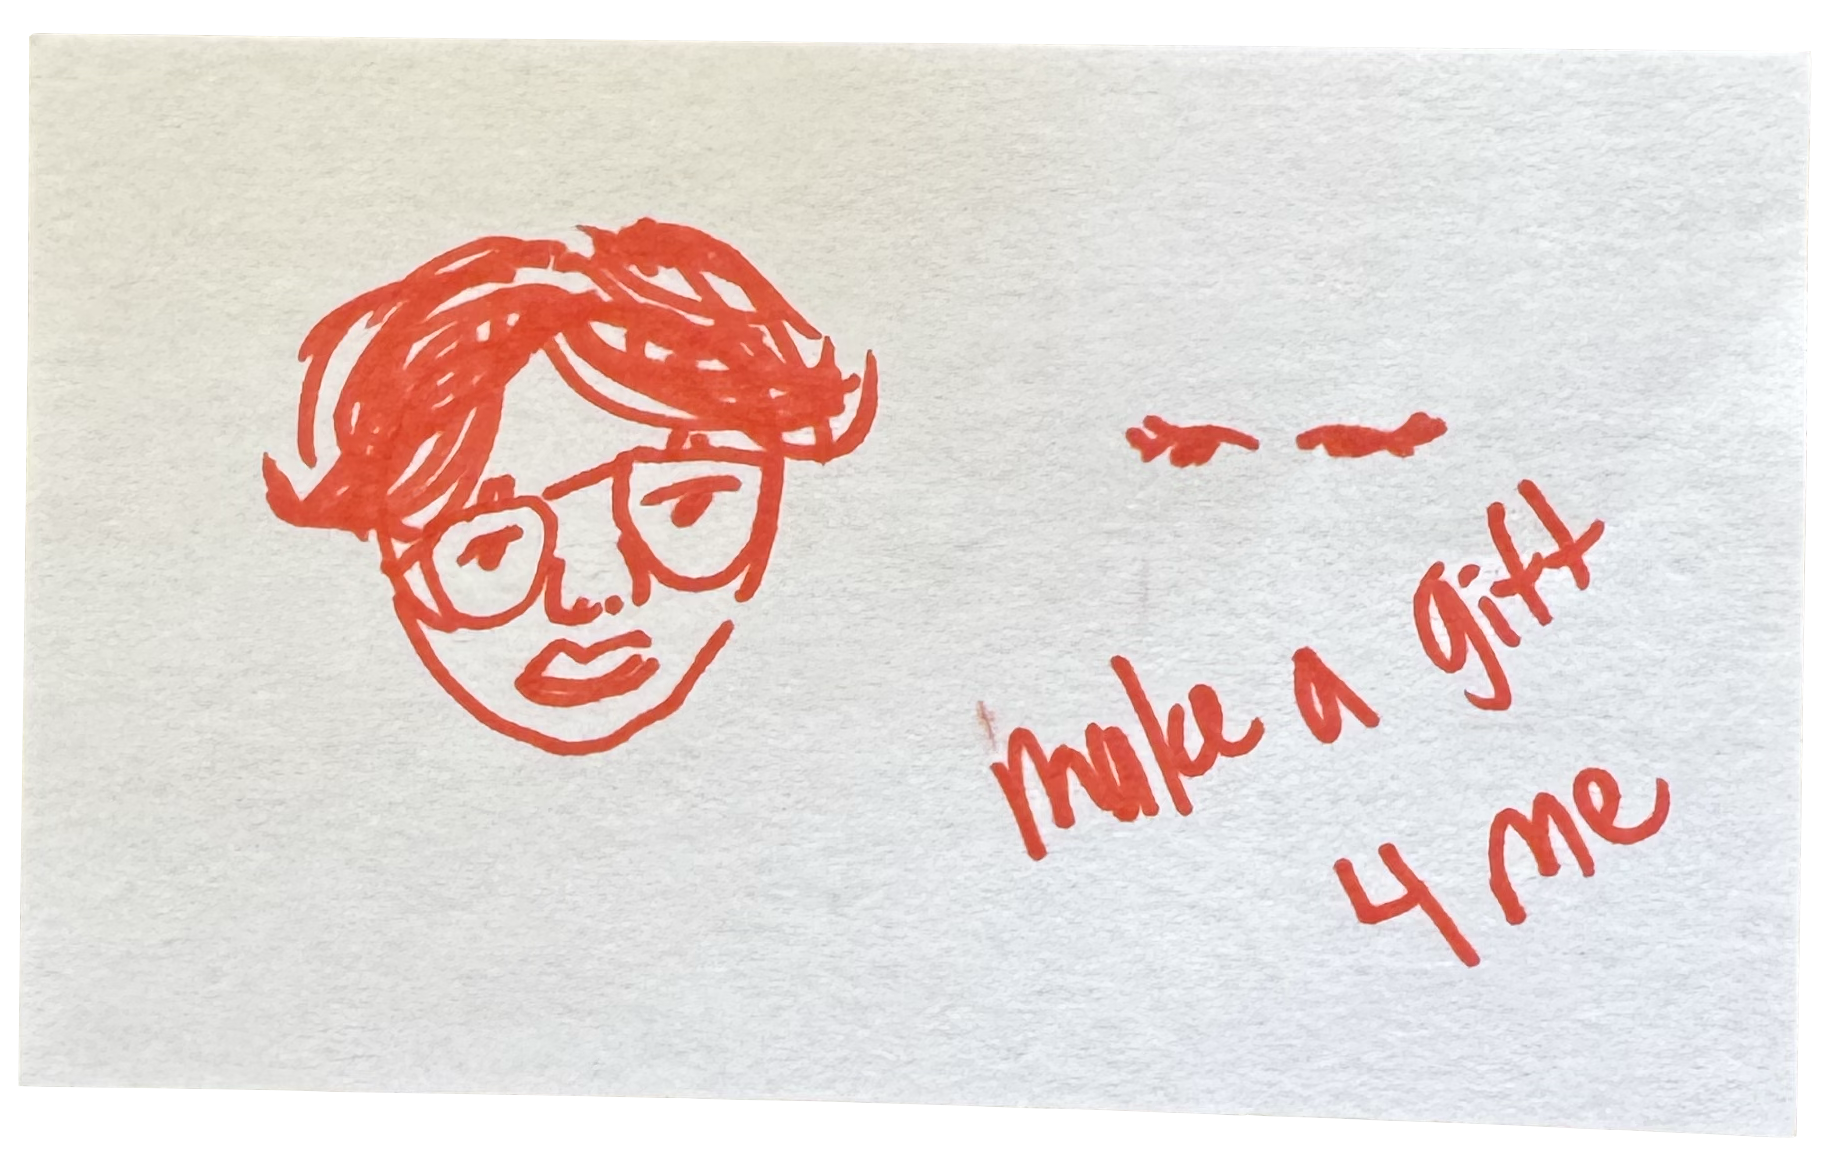 make a gift
4 me